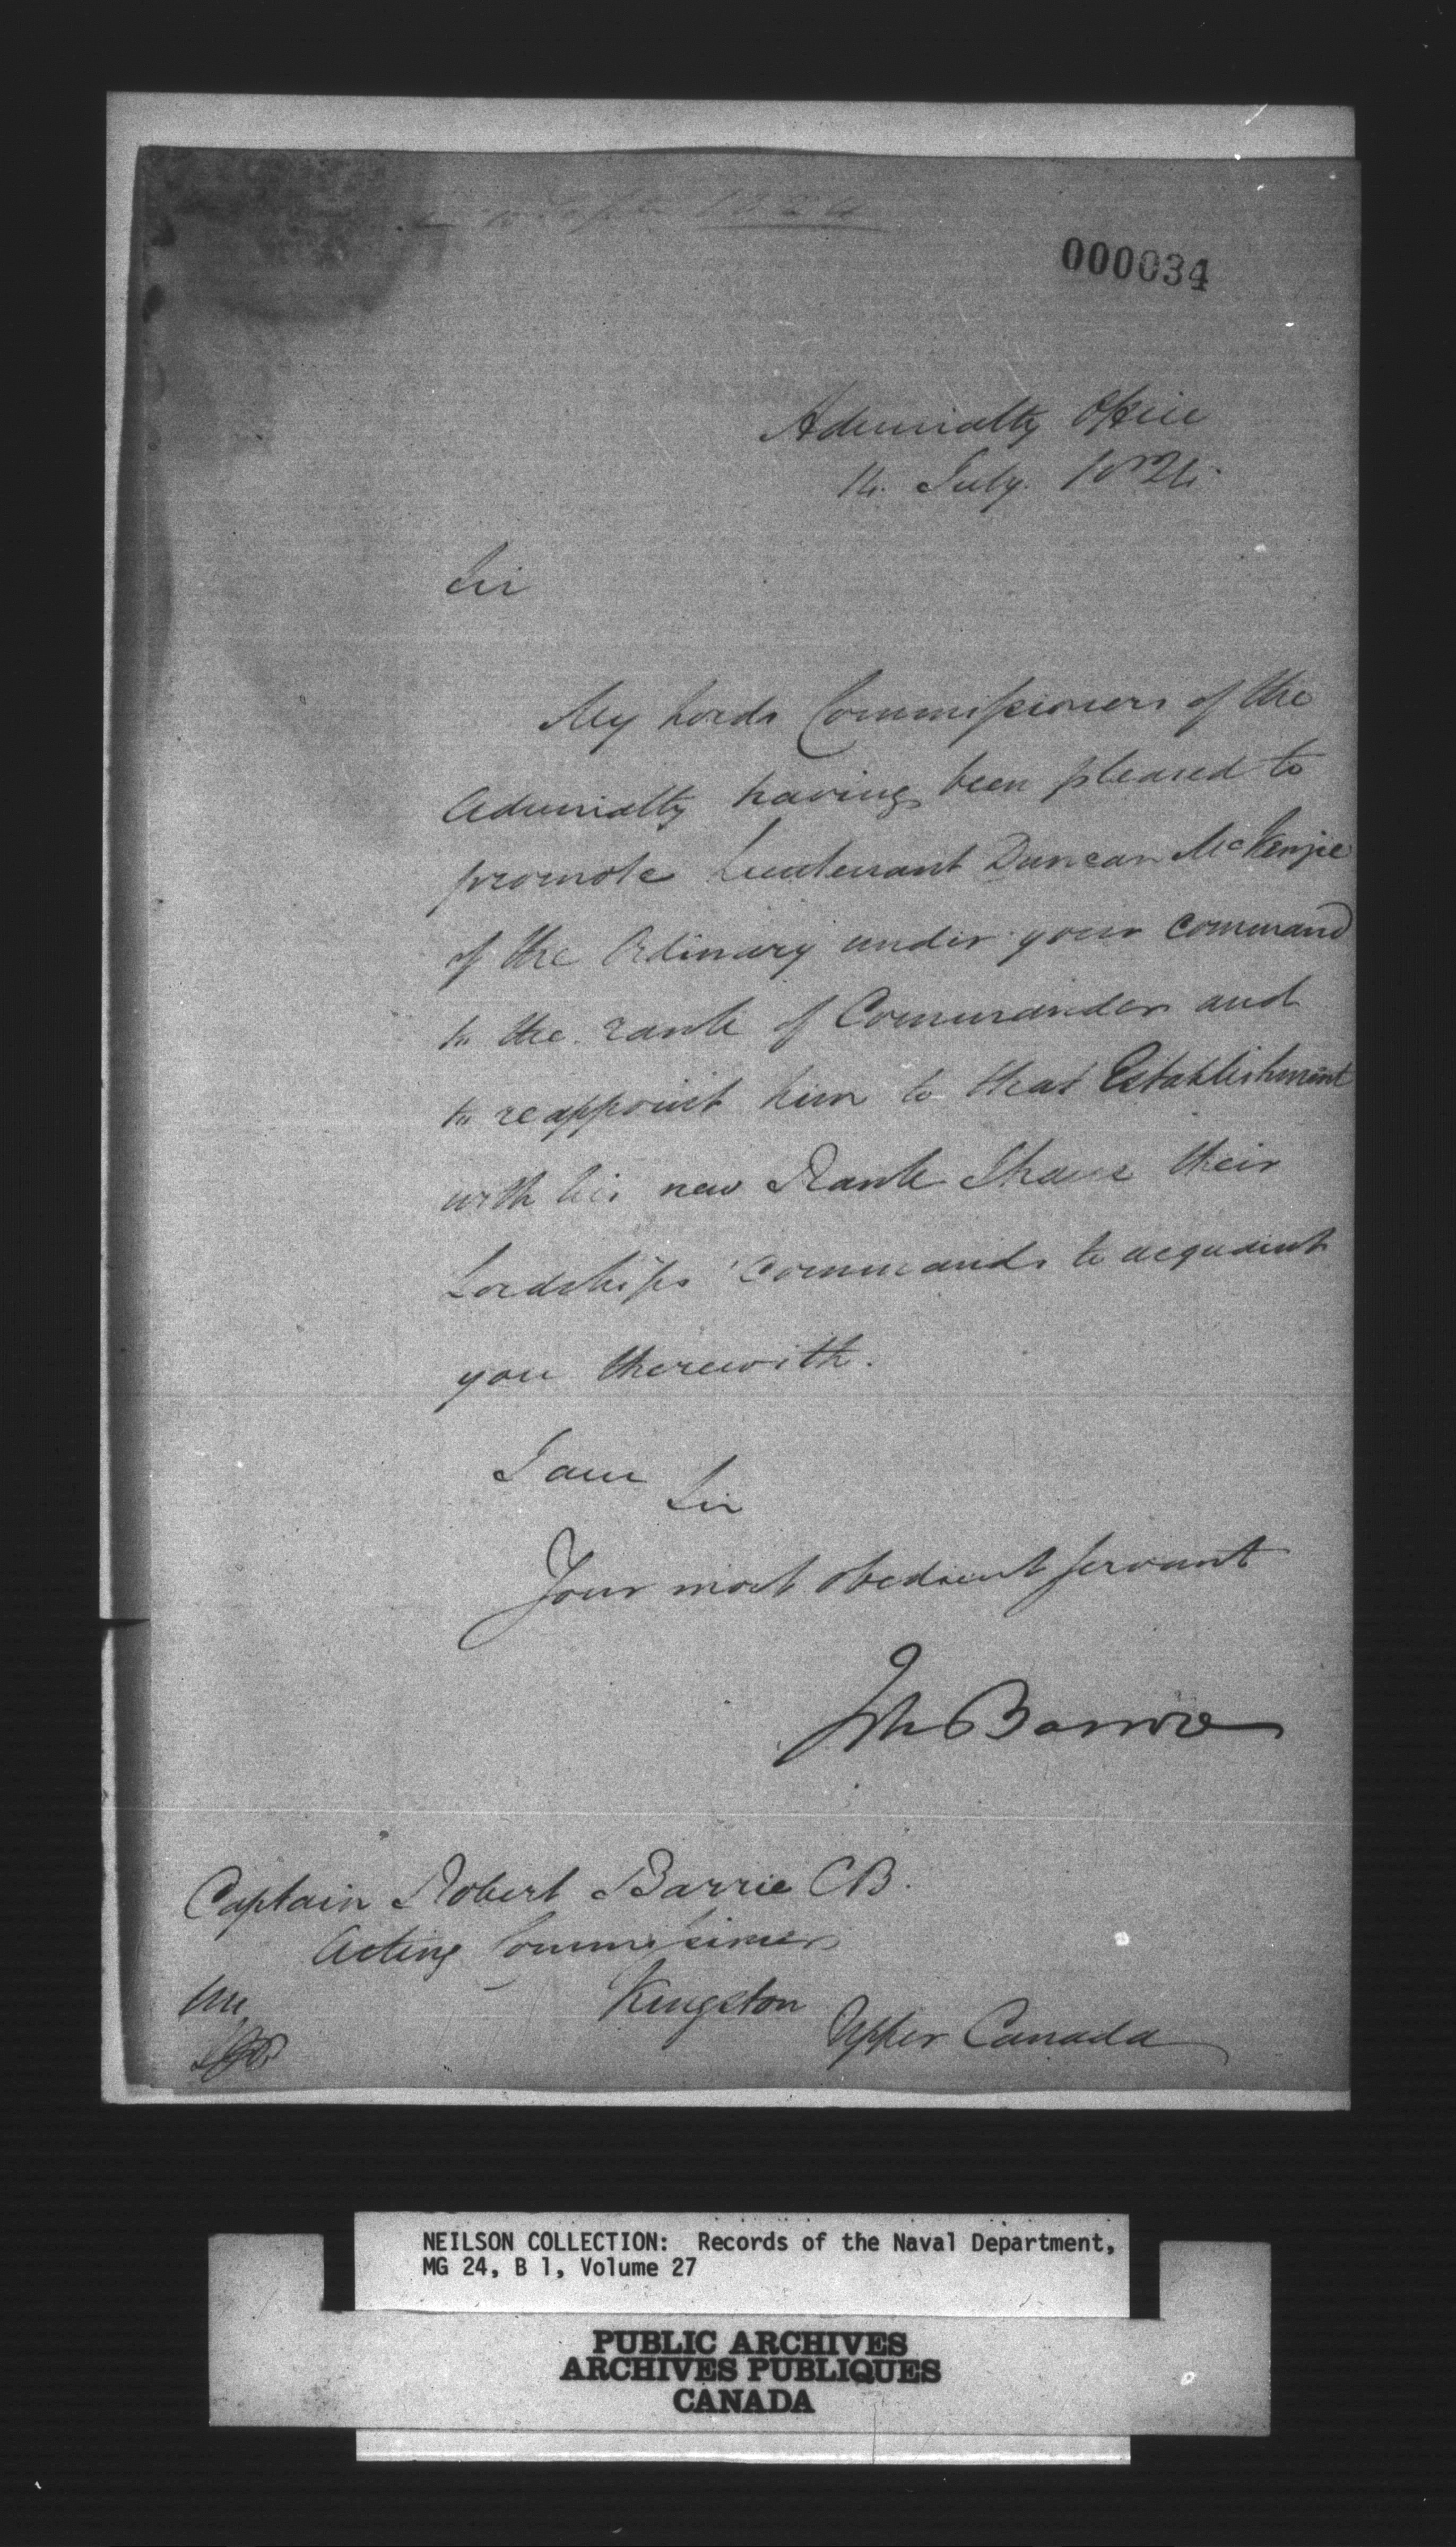 10 Septr 1824
000034
Admiralty Office
14. July. 1824.
Sir
My Lords Commissioners of the
Admiralty having been pleased to
promote Lieutenant Duncan McKenzie
of the Ordinary under your Command
to the rank of Commander and
to reappoint him to that Establishment
with his new Rank I have their
Lordships' Commands to acquaint
you therewith.
I am
Sir
Your most obedient servant
John Barrow
Captain Robert Barrie CB.
Acting Commissioner
Kingston
Upper Canada
NEILSON COLLECTION: Records of the Naval Department,
MG 24, B 1, Volume 27
PUBLIC ARCHIVES
ARCHIVES PUBLIQUES
CANADA